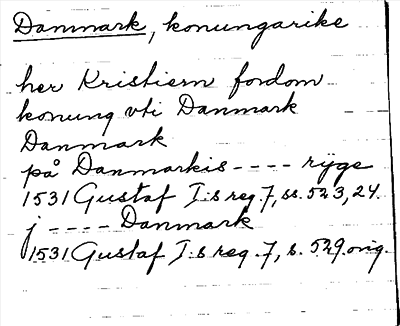 Danmark, konungarike
her Kristiern fordom
konung vti Danmark
Danmark
på Danmarkis ---- rijge
1531 Gustaf I:s reg. 7, ss. 523, 24.
j ---- Danmark
1531 Gustaf I:s reg. 7, s. 529. orig.